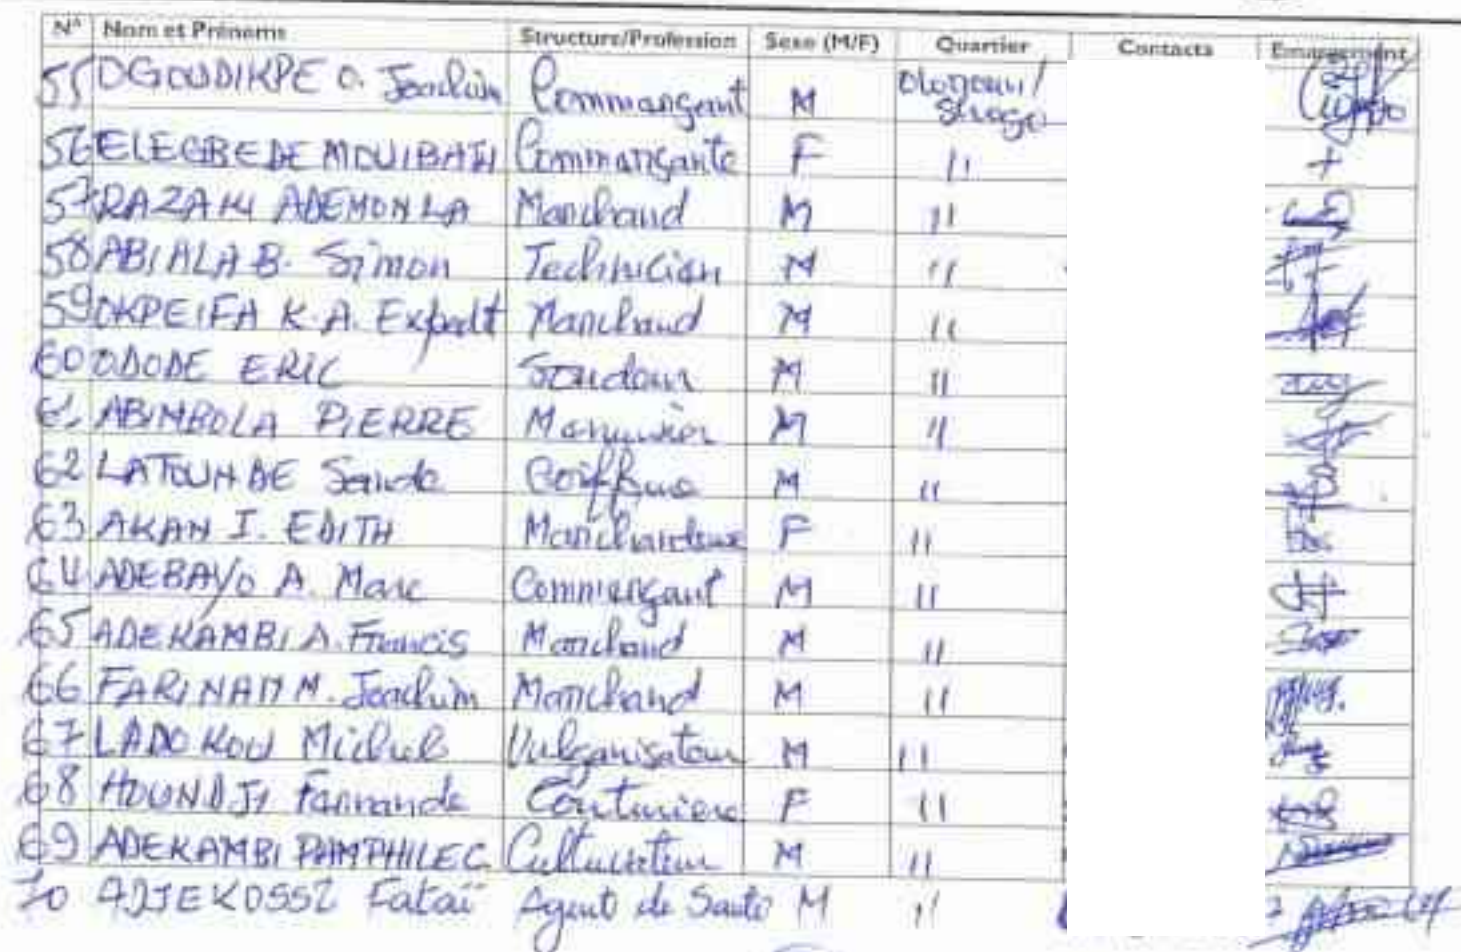 N° Nom et Prénoms Structure/Profession Sexe (M/F) Quartier Contacts Emargement
55 OGOUDIKPE O. Joachim Commerçant M Ologoun/
56 ELEGBEDE MOUIBATH Commerçante F "
57 RAZAKI ADEMONLA Marchand M "
58 ABIALA B. Simon Technician M "
59 OKPEIFA K.A. Expedit Marchand M "
60 ODODE ERIC Soudeur M "
61 ABIMBOLA PIERRE Menuisier M "
62 LATOUNDE M "
63 AKAN I. EDITH Marchandeuse F "
64 ADEBAYO A. Marc Commerçant M "
65 ADEKAMBI A. Francis Marchand M "
66 FARINAM M. Joachim Marchand M "
67 LADOKOU Michel Vulganisateur M "
68 HOUNDJI Fernande Couturiere F "
69 ADEKAMBI PAMPHILE C. Cultivateur M "
70 ADJEKOSSI Fataï Agent de Santé M "